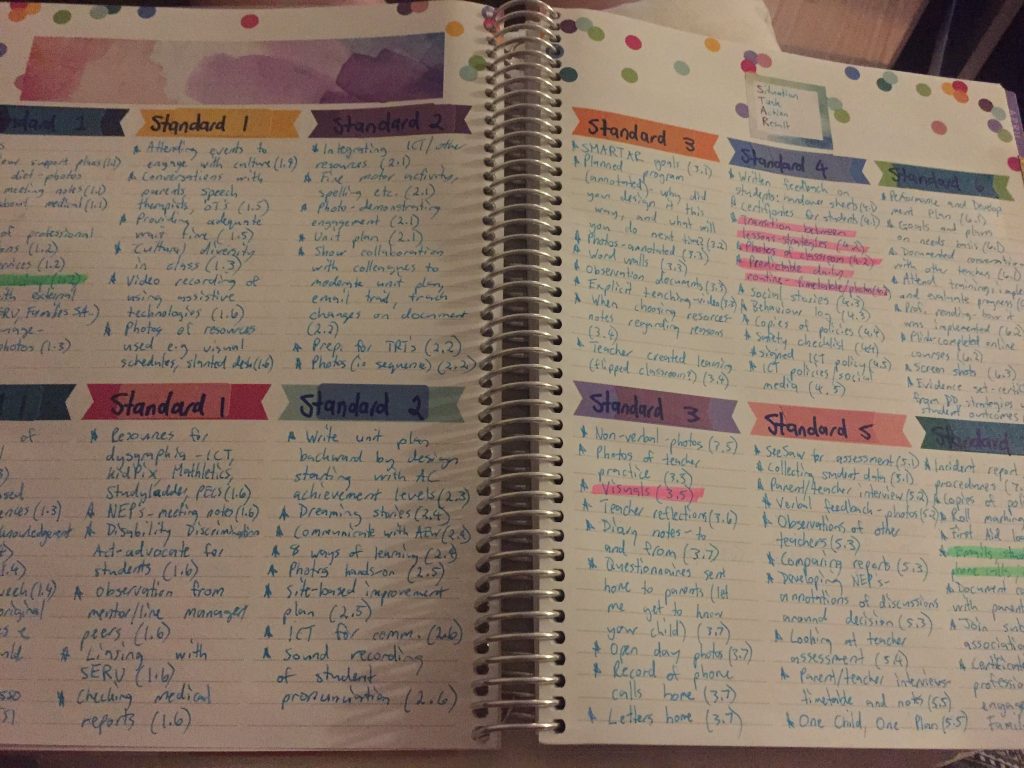 Standard 1
* Attending events to
engage with culture (1.4)
* Conversations with
parents, speech
therapists, OT's (1.5)
* Providing adequate
wait time (1.5)
* Cultural diversity
in class (1.3)
* Video recording of
using assistive
technologies (1.6)
* Photos of resources
used e.g visual
schedules, slanted desk (1.6)
Standard 2
* Integrating ICT/other
resources (2.1)
* Fine motor activities,
spelling etc. (2.1)
* Photo-demonstrating
engagement (2.1)
* Unit plan (2.1)
* Show collaboration
with colleagues to
moderate unit plan,
email trail, track
changes on document
(2.2)
* Prep. for TRT's (2.2)
* Photos (in sequence) (2.2)
diet-photos
meeting notes (1.1)
about medical (1.1)
of professional
(1.2)
(1.2)
with external
photos (1.3)
Standard 1
* Resources for
dysgraphia - ICT,
kidPix, Mathletics,
Studyladder, PECS (1.6)
* NEP's-meeting notes (1.6)
* Disability Discrimination
Act-advocate for
students (1.6)
* Observation from
mentor/line manager
peers (1.6)
* Liasing with
SERU (1.6)
* Checking medical
reports (1.6)
Standard 2
* Write unit plan
backward by design
starting with AC
achievement levels (2.3)
* Dreaming stories (2.4)
* Communicate with AEW (2.4)
* 8 ways of learning (2.4)
* Photos hands-on (2.5)
* Site-based improvement
plan (2.5)
* ICT for comm. (2.6)
* Sound recording
of student
pronunciation (2.6)
Situation
Task
Action
Result
Standard 3
* SMARTAR goals (3.1)
* Planned program
(annotated) why did
you design it this
way, and what will
you do next time? (3.2)
* Photos-annotated (3.3)
* Word walls (3.3)
* Observation documents (3.3)
* Explicit teaching-video (3.3)
* When choosing resources-
notes regarding reasons
(3.4)
* Teacher created learning
(flipped classroom?) (3.4)
Standard 4
* Written feedback on
students: readover sheets (4.1)
* Certificates for students (4.1)
* Transition between
lessons-strategies (4.2)
* Photos of classroom (4.2)
* Predictable daily
routine-timetable/photos (4.2)
* Social stories (4.3)
* Behaviour log (4.3)
* Copies of policies (4.4)
* Safety checklist (4.4)
* Signed ICT policy (4.5)
* ICT policies social
media (4.5)
Standard 6
* Performance and Develop
ment Plan (6.1)
* Goals and plans
on needs basis (6.1)
* Documented
with other teachers (6.1)
* Attend trainings,
and evaluate progress
* Prof. reading-how it
was implemented (6.2)
* Plink-completed online
courses (6.2)
* Screen shots (6.3)
* Evidence set-certif
from PD, strategies
student outcomes
Standard 3
* Non-verbal-photos (3.5)
* Photos of teacher
practice (3.5)
* Visuals (3.5)
* Teacher reflections (3.6)
* Diary notes-to
and from (3.7)
* Questionnaires sent
home to parents (let
me get to know
your child) (3.7)
* Open day photos (3.7)
* Record of phone
calls home (3.7)
* Letters home (3.7)
Standard 5
* SeeSaw for assessment (5.1)
* Collecting student data (5.1)
* Parent/teacher interview (5.2)
* Verbal feedback-photos (5.2)
* Observations of other
teachers (5.3)
* Comparing reports (5.3)
* Developing NEP's-
annotations of discussions
around decision (5.3)
* Looking at teacher
assessment (5.4)
* Parent/teacher interviews-
timetable and notes (5.5)
* One Child, One Plan (5.5)
Standard
* Incident report
procedures
* Copies of
* Roll marking
* First Aid
home calls
* Document
with parent
* Join
association
* Certificate
engage